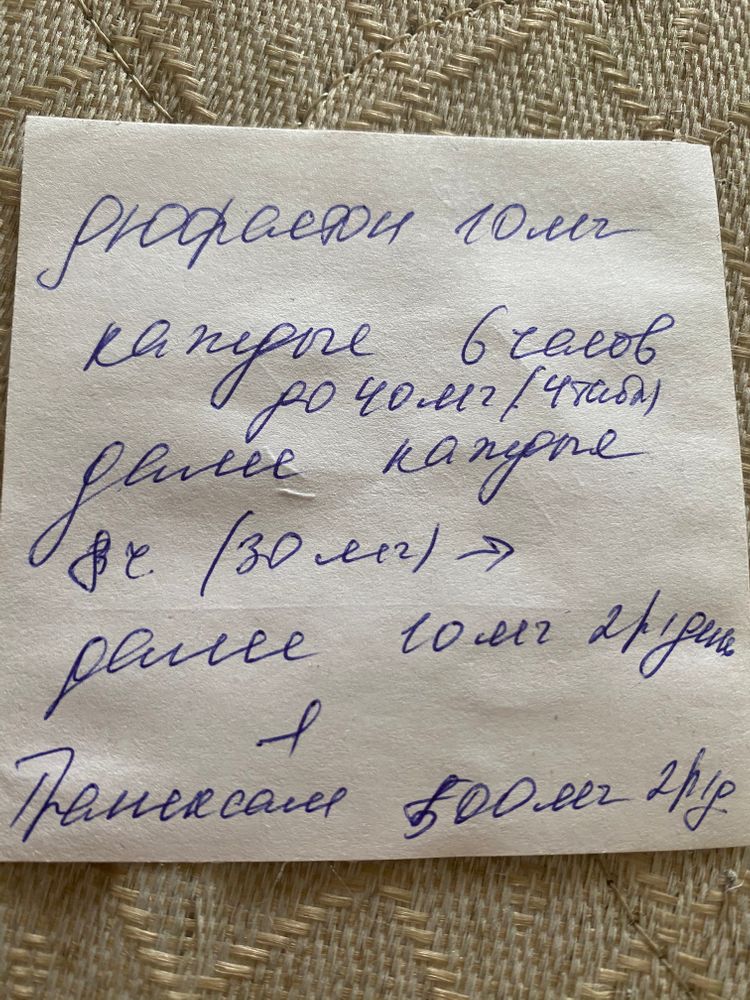 Дюфастон 10 мг
каждые 6 часов
до 40 мг (4 табл)
далее каждые
8 ч. (30 мг) →
далее 10 мг 2 р/день
+
Транексам 500 мг 2 р/д